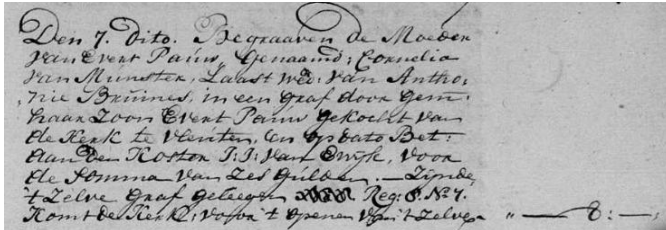 Den 7. dito. Begraaven de Moeder
van Evert Paüw, genaamd: Cornelia
van Munster, Laast wed: van Antho:
nie Brüines, in een graf door gem:
haar Zoon Evert Paüw gekocht van
de Kerk te Vleüten, en op dato Bet:
aan den Koster J: J: van Ewijk, voor
de Somma van Zes Gülden. — Zijnde
't Zelve graf geleegen Reg: 8. No 7.
Komt de Kerk, voor 't openen van 't Zelve " — 8: —,